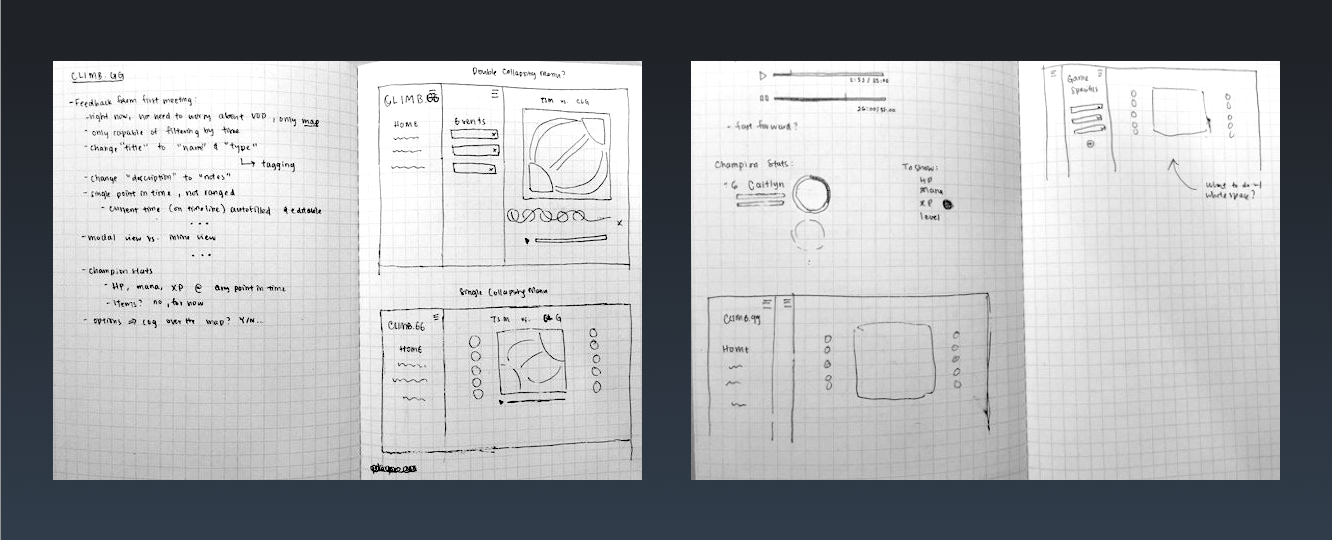 CLIMB.GG
- Feedback from first meeting:
- right now, no need to worry about VOD, only map
- only capable of filtering by time
- change "title" to "name" & "type"
tagging
- change "description" to "notes"
- single point in time, not ranged
- current time (on timeline) autofilled & editable
...
- modal view vs. inline view
...
- champion stats
- HP, mana, XP @ any point in time
- items? no, for now
- options => log over the map? Y/N...
Double Collapsing Menu?
CLIMB.GG
TSM vs. CLG
HOME
Events
x
x
x
x
Single Collapsing Menu
CLIMB.GG
TSM vs. G
HOME
1:52 / 35:00
- fast forward?
Champion Stats:
- 6 Caitlyn
To Show:
HP
mana
XP
level
CLIMB.gg
Home
Game
Specifics
What to do w/
white space?